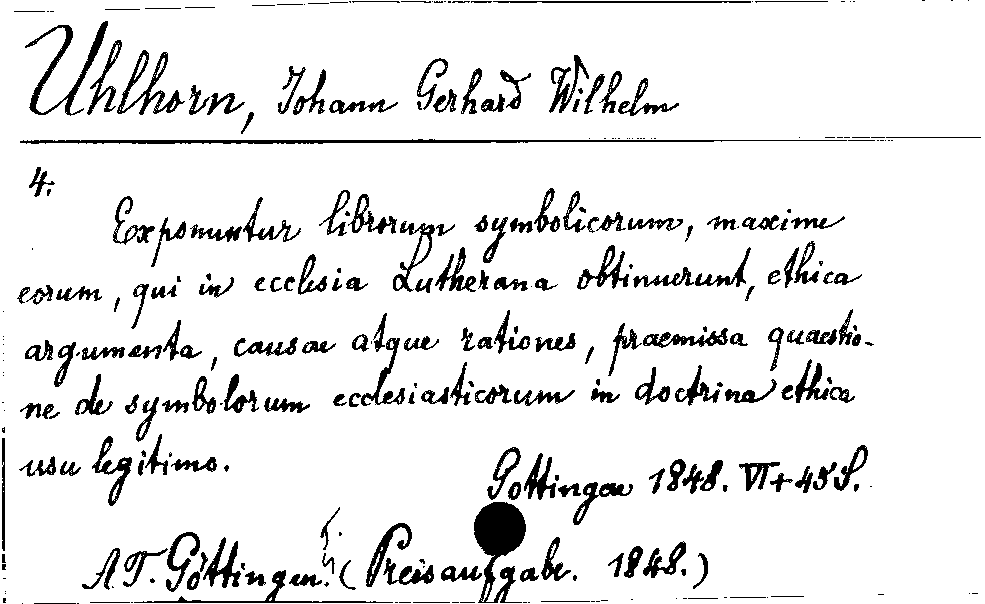 Uhlhorn, Johann Gerhard Wilhelm
4.
Exponuntur librorum symbolicorum, maxime
eorum, qui in ecclesia Lutherana obtinuerunt, ethica
argumenta, causae atque rationes, praemissa quaestio-
ne de symbolorum ecclesiasticorum in doctrina ethica
usu legitimo.
Gottingae 1848. VI + 45 S.
A T. Göttingen. (Preisaufgabe. 1848.)